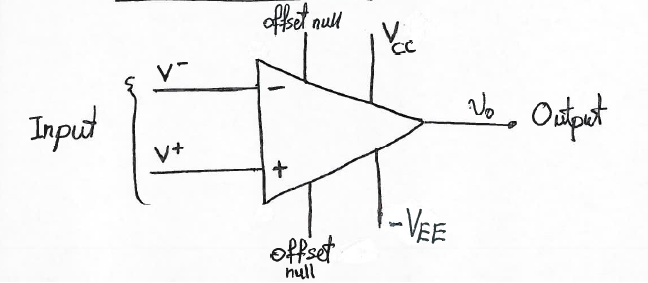 offset null
Vcc
V⁻
−
Input
V₀
Output
V⁺
+
-VEE
offset
null